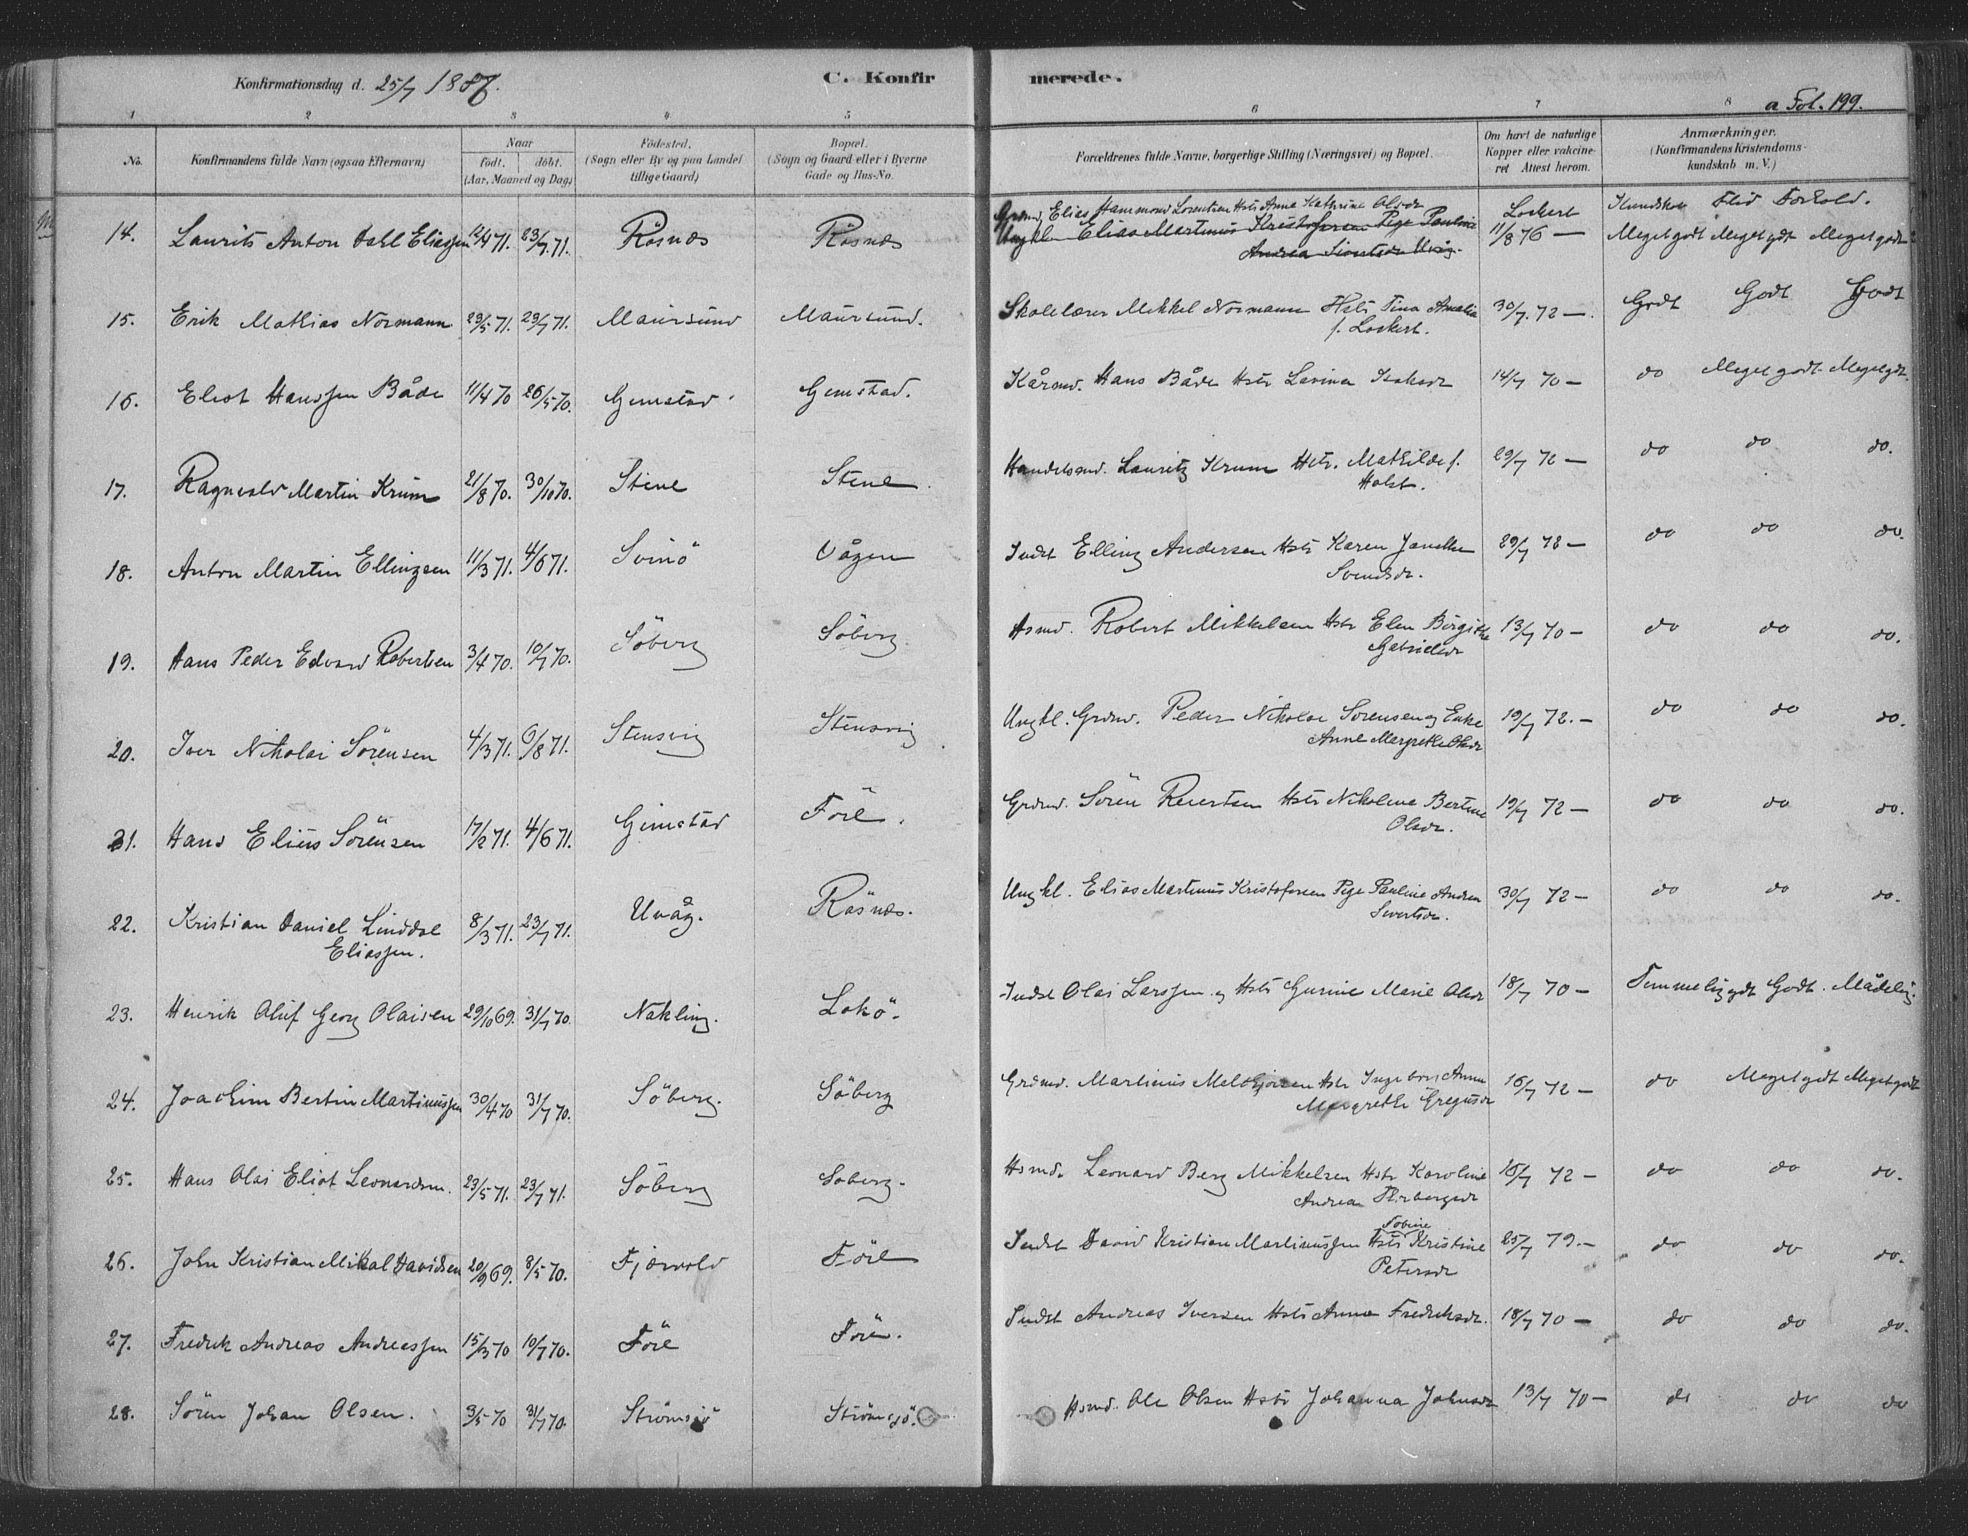 Konfirmationsdag d. 25/7 1886. C. Konfirmerede. a Fol. 199.
1 2 3 4 5 6 7 8
No. Konfirmandens fulde Navn (ogsaa Efternavn) Naar født. døbt. (Aar, Maaned og Dag) Fødested. (Sogn eller By og paa Landet tillige Gaard) Bopæl. (Sogn og Gaard eller i Byerne Gade og Hus-No. Forældrenes fulde Navne, borgerlige Stilling (Næringsvei) og Bopæl. Om havt de naturlige Kopper eller vakcineret Attest herom. Anmærkninger. (Konfirmandens Kristendomskundskab m. V.)
Grdmd. Elias Hammond Lorentsen Hstr Anna Kathrine Olsdr Lockert Kundskab Flid Forhold.
14. Laurits Anton Dahl Eliassen 12/4 71. 23/7 71. Råsnæs Råsnæs Ungkl. Elias Martinus Kristofersen Pige Pauline 11/8 76 — Meget godt Meget gdt Meget godt
Andrea Sivertsdr Uvåg.
15. Erik Mathias Normann 29/5 71. 23/7 71. Maursund Maursund. Skolelærer Mikkel Normann Hstr Tina Amalia 30/7. 72 —. Godt Godt Godt
f. Lockert.
16. Eliot Hanssen Både 11/4 70 26/5 70. Gimstad Gimstad. Kårmd. Hans Både Hstr Lavina Isaksdr 14/7 70 — do Meget godt Meget gdt.
17. Ragnvald Martin Krum 21/8 70. 30/10 70. Stene Stene. Handelsmd. Lauritz Krum Hstr. Mathilde f. 29/7 72 — do do do.
Holst.
18. Anton Martin Ellingsen 11/3 71. 4/6 71. Svinö Vågen Indst Elling Andersen Hstr Karen 29/7 72 — do do do.
Svendsdr.
19. Hans Peder Edvard Robertsen 3/4 70. 10/7 70. Söberg Söberg. Hsmd. Robert Mikkelsen Hstr Elen Birgitte 13/7 70 — do do do.
Gabrielsdr
20. Iver Nikolai Sörensen 4/3 71. 6/8 71. Stensvig Stensvig Ungkl. Grdmd. Peder Nikolai Sorensen og Enke 19/7 72. — do do do.
Anne Margrethe Olsdr
21. Hans Elius Sörensen 17/2 71. 4/6 71. Gimstad Före. Grdmd. Sören Reiertsen Hstr Nikoline Bertine 19/7 72 — do do do.
Olsdr.
22. Kristian Daniel Linddal 8/3 71. 23/7 71. Uvåg. Råsnæs. Ungkl. Elias Martinus Kristofersen Pige Pauline Andrea 30/7 72 — do do do.
Eliassen. Sivertsdr.
23. Henrik Oluf Georg Olaisen 29/10 69. 31/7 70. Nakling. Lokö. Indst Olai Larssen og Hstr Gurine Marie Olsdr 18/7 70 — Temmelig gdt Godt. Mådelig.
24. Joachim Bertin Martinussen 30/4 70 31/7 70. Söberg. Söberg Grdmd. Martinus Melchiorsen Hstr Ingeborg Anna 16/7 72 — do Meget gdt Meget godt
Margrethe Gregusdr
25. Hans Olai Eliot Leonardsen. 23/5 71. 23/7 71. Söberg Söberg. Hsmd. Leonard Berg Mikkelsen Hstr Karoline 16/7 72 — do do do.
Andrea
Tobine
26. John Kristian Mikal Davidsen 20/9 69. 8/5 70. Fjærvold Före Indst David Kristian Martinussen Hstr Kristine 25/7 79. — do do do.
Petersdr
27. Fredrik Andreas Andreassen 15/3 70 10/7 70. Före Före. Indst Andreas Iversen Hstr Anna Fredriksdr. 18/7 70 — do do do.
28. Sören Johan Olsen. 3/5 70 31/7 70. Strömsjö Strömsjö. Hsmd. Ole Olsen Hstr Johanna Johnsdr 13/7 70 — do do do